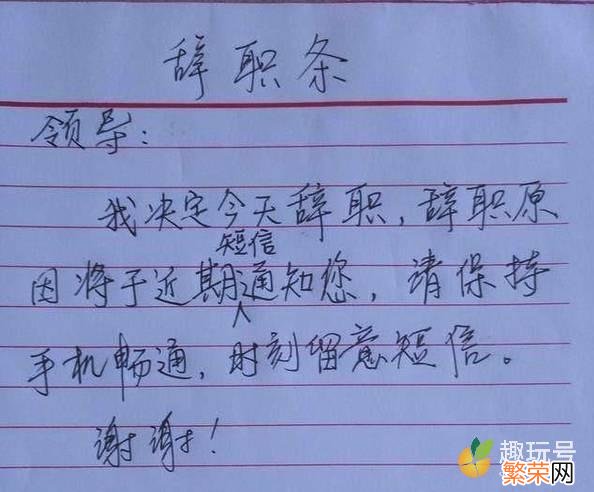 辞职条
领导：
我决定今天辞职，辞职原
因将于近期短信通知您，请保持
手机畅通，时刻留意短信。
谢谢！
趣玩号
繁荣网